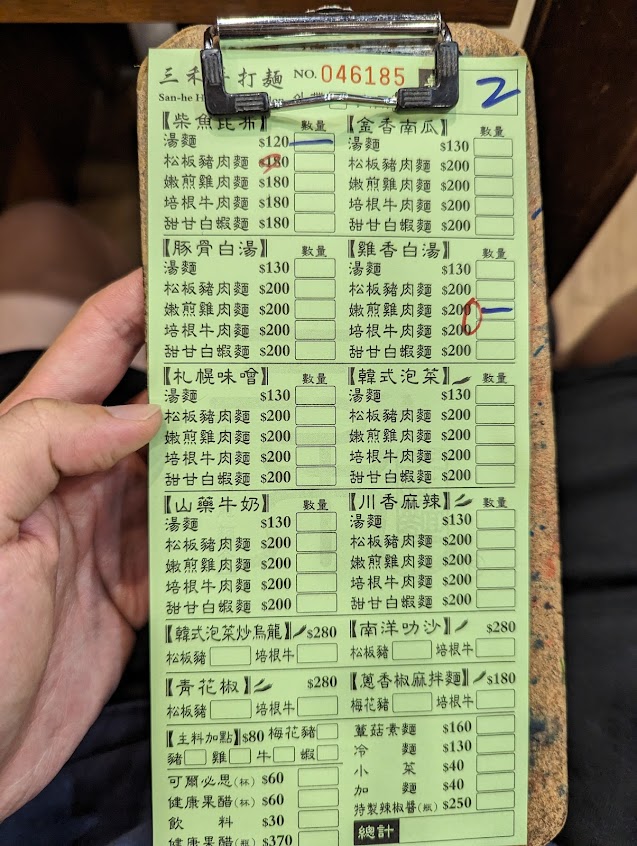 三禾手打麵 NO. 046185
San-he H
2
【柴魚昆布】 數量
湯麵 $120
松板豬肉麵 $180
嫩煎雞肉麵 $180
培根牛肉麵 $180
甜甘白蝦麵 $180
【金香南瓜】 數量
湯麵 $130
松板豬肉麵 $200
嫩煎雞肉麵 $200
培根牛肉麵 $200
甜甘白蝦麵 $200
【豚骨白湯】 數量
湯麵 $130
松板豬肉麵 $200
嫩煎雞肉麵 $200
培根牛肉麵 $200
甜甘白蝦麵 $200
【雞香白湯】 數量
湯麵 $130
松板豬肉麵 $200
嫩煎雞肉麵 $200
培根牛肉麵 $200
甜甘白蝦麵 $200
【札幌味噌】 數量
湯麵 $130
松板豬肉麵 $200
嫩煎雞肉麵 $200
培根牛肉麵 $200
甜甘白蝦麵 $200
【韓式泡菜】 數量
湯麵 $130
松板豬肉麵 $200
嫩煎雞肉麵 $200
培根牛肉麵 $200
甜甘白蝦麵 $200
【山藥牛奶】 數量
湯麵 $130
松板豬肉麵 $200
嫩煎雞肉麵 $200
培根牛肉麵 $200
甜甘白蝦麵 $200
【川香麻辣】 數量
湯麵 $130
松板豬肉麵 $200
嫩煎雞肉麵 $200
培根牛肉麵 $200
甜甘白蝦麵 $200
【韓式泡菜炒烏龍】 $280
松板豬 培根牛
【南洋叻沙】 $280
松板豬 培根牛
【青花椒】 $280
松板豬 培根牛
【蔥香椒麻拌麵】 $180
梅花豬 培根牛
【主料加點】 $80 梅花豬
豬 雞 牛 蝦
可爾必思(杯) $60
健康果醋(杯) $60
飲料 $30
健康果醋(瓶) $370
蕈菇素麵 $160
冷麵 $130
小菜 $40
加麵 $40
特製辣椒醬(瓶) $250
總計